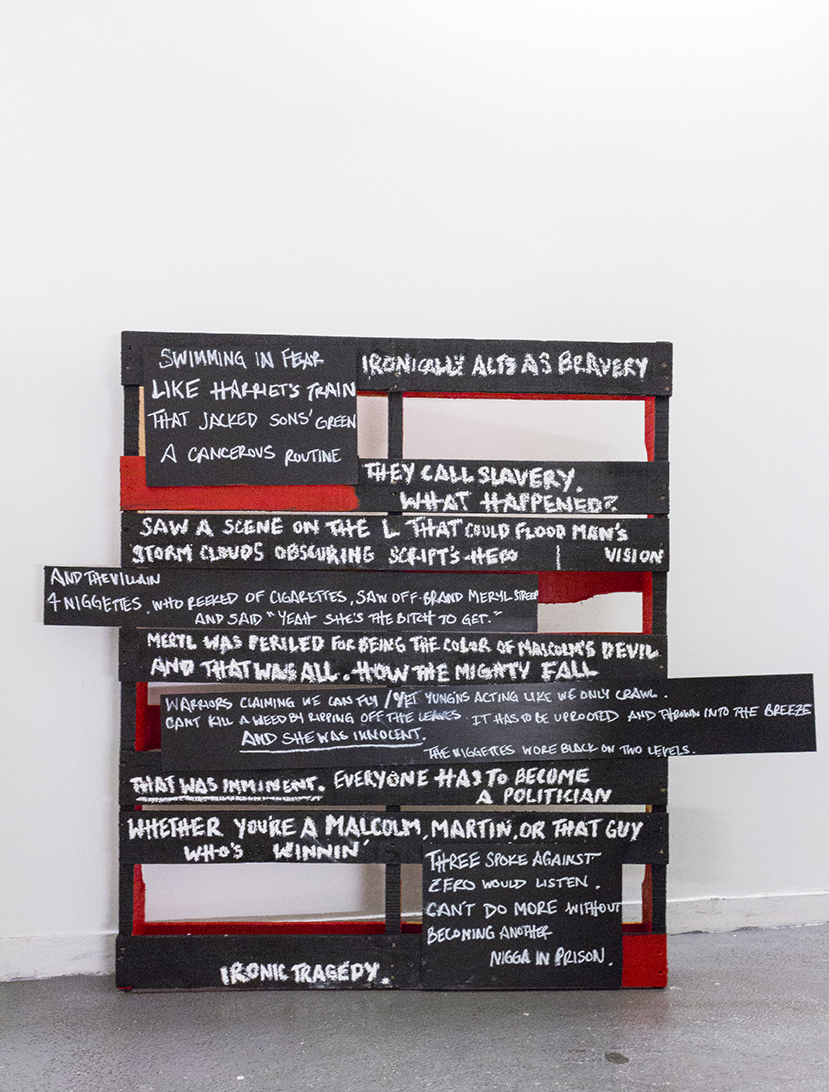 SWIMMING IN FEAR
LIKE HARRIET'S TRAIN
THAT JACKED SONS' GREEN
A CANCEROUS ROUTINE
IRONICALLY ACTS AS BRAVERY
THEY CALL SLAVERY.
WHAT HAPPENED?
SAW A SCENE ON THE L THAT COULD FLOOD MAN'S
STORM CLOUDS OBSCURING SCRIPT'S HERO | VISION
AND THE VILLAIN
4 NIGGETTES. WHO REEKED OF CIGARETTES, SAW OFF-BRAND MERYL STREEP
AND SAID "YEAH SHE'S THE BITCH TO GET."
MERYL WAS PERILED FOR BEING THE COLOR OF MALCOLM'S DEVIL
AND THAT WAS ALL. HOW THE MIGHTY FALL
WARRIORS CLAIMING WE CAN FLY / YET YUNG'NS ACTING LIKE WE ONLY CRAWL.
CAN'T KILL A WEED BY RIPPING OFF THE LEAVES IT HAS TO BE UPROOTED AND THROWN INTO THE BREEZE
AND SHE WAS INNOCENT.
THE NIGGETTES WORE BLACK ON TWO LEVELS.
THAT WAS IMMINENT. EVERYONE HAS TO BECOME
A POLITICIAN
WHETHER YOU'RE A MALCOLM, MARTIN, OR THAT GUY
WHO'S WINNIN'
THREE SPOKE AGAINST
ZERO WOULD LISTEN.
CAN'T DO MORE WITHOUT
BECOMING ANOTHER
NIGGA IN PRISON.
IRONIC TRAGEDY.